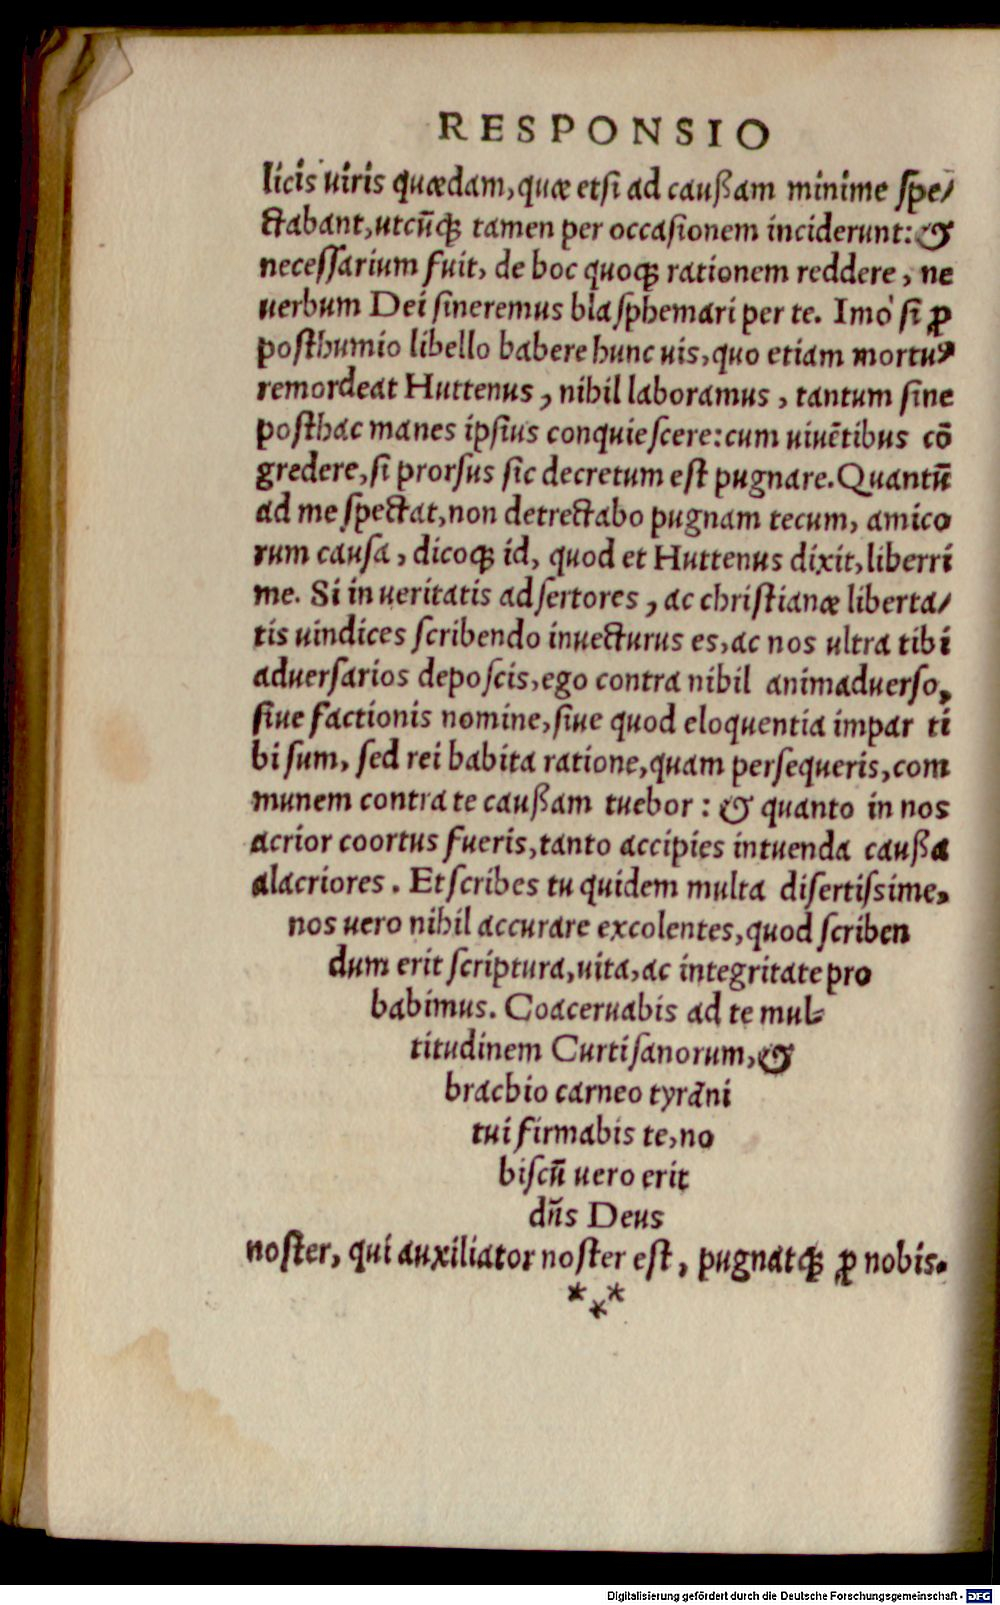 RESPONSIO
licis uiris quædam, quæ etsi ad caußam minime spe/
ctabant, utcūq; tamen per occasionem inciderunt: &
necessarium fuit, de hoc quoq; rationem reddere, ne
uerbum Dei sineremus blasphemari per te. Imò si ꝓ
posthumio libello habere hunc uis, quo etiam mortuꝰ
remordeat Huttenus, nihil laboramus, tantum sine
posthac manes ipsius conquiescere: cum uiuētibus cō
gredere, si prorsus sic decretum est pugnare. Quantū
ad me spectat, non detrectabo pugnam tecum, amico
rum causa, dicoq; id, quod et Huttenus dixit, liberri
me. Si in ueritatis adsertores, ac christianæ liberta/
tis uindices scribendo inuecturus es, ac nos ultra tibi
aduersarios deposcis, ego contra nihil animaduerso,
siue factionis nomine, siue quod eloquentia impar ti
bi sum, sed rei habita ratione, quam persequeris, com
munem contra te caußam tuebor: & quanto in nos
acrior coortus fueris, tanto accipies in tuenda caußa
alacriores. Et scribes tu quidem multa disertissime,
nos uero nihil accurare excolentes, quod scriben
dum erit scriptura, uita, ac integritate pro
babimus. Coaceruabis ad te mul-
titudinem Curtisanorum, &
brachio carneo tyrāni
tui firmabis te, no
biscū uero erit
dn̄s Deus
noster, qui auxiliator noster est, pugnatq; ꝓ nobis.
***
Digitalisierung gefördert durch die Deutsche Forschungsgemeinschaft - DFG